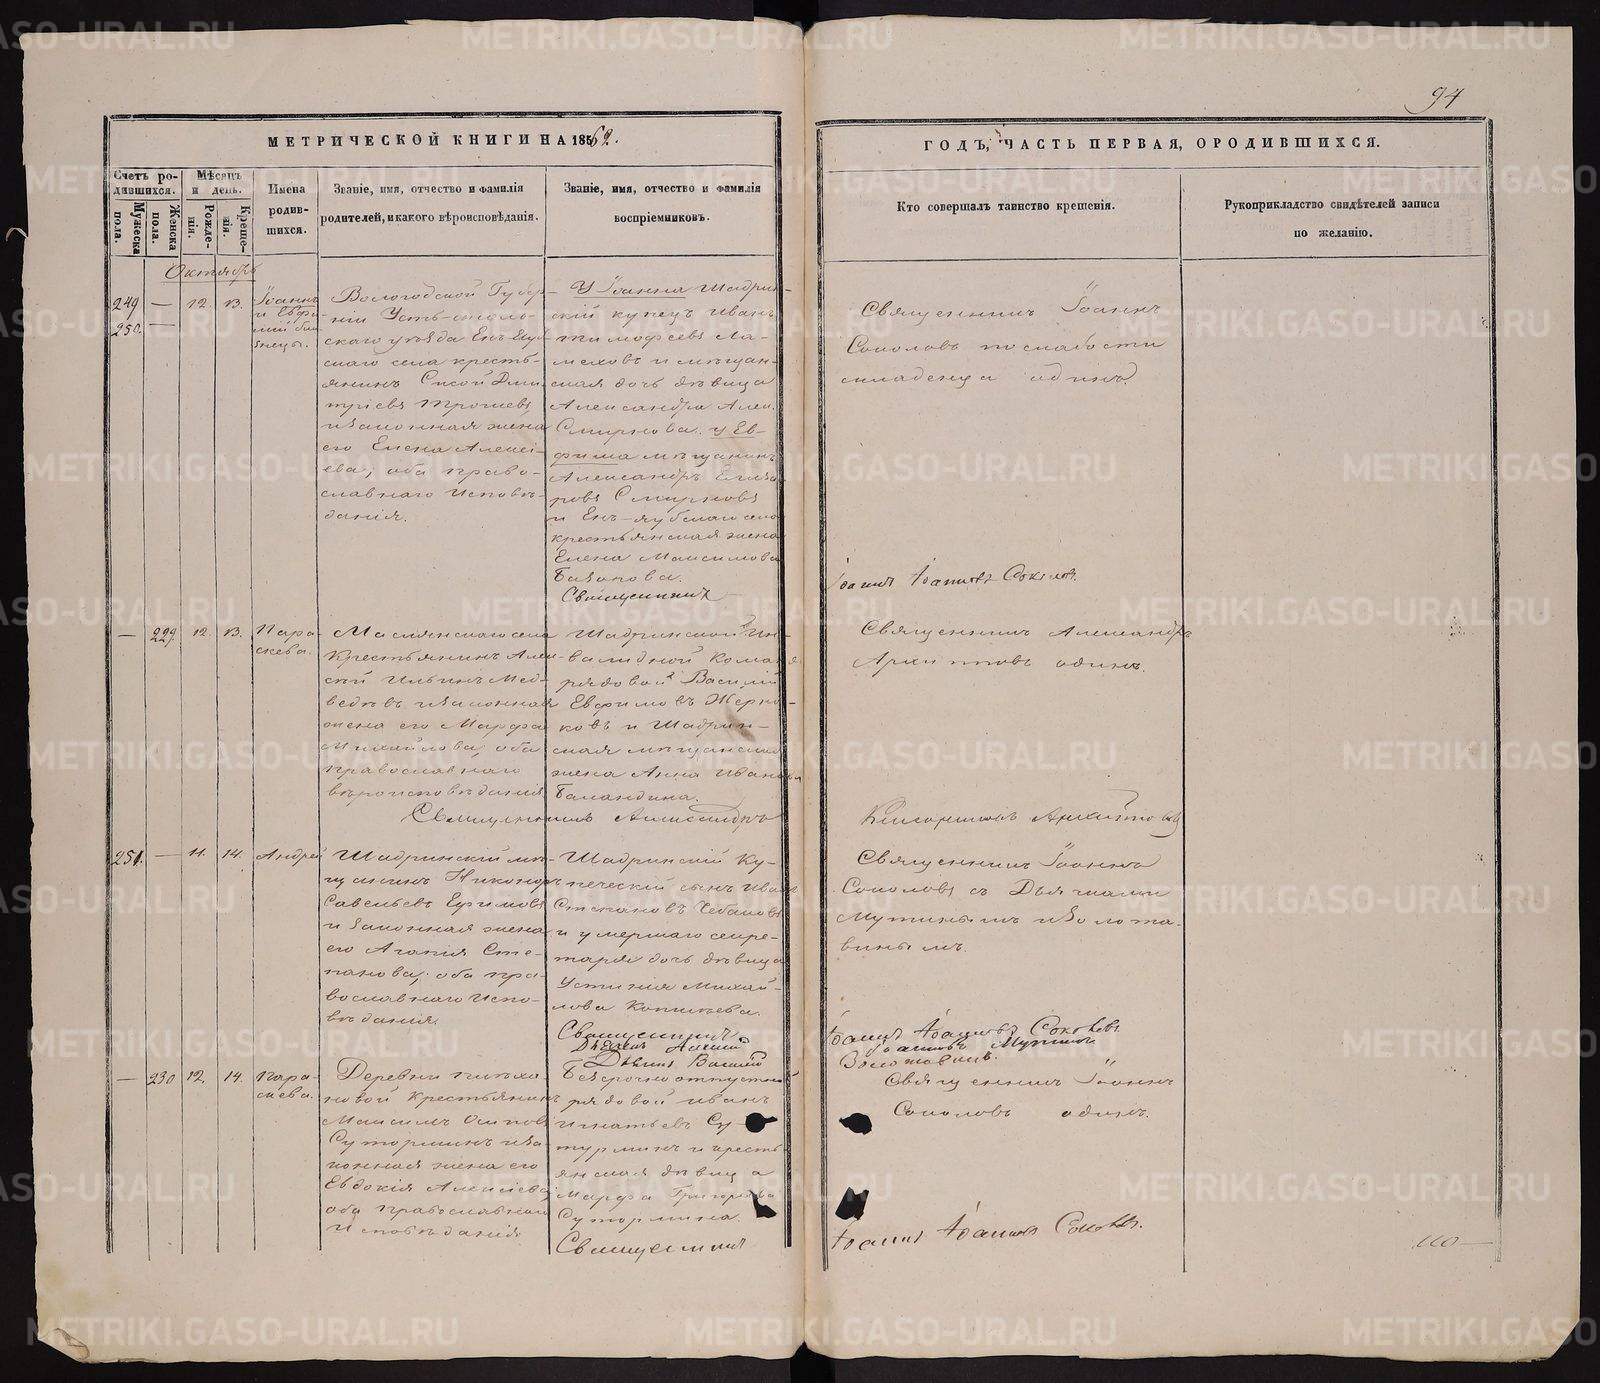 94
МЕТРИЧЕСКОЙ КНИГИ НА 1862.
ГОДЪ, ЧАСТЬ ПЕРВАЯ, О РОДИВШИХСЯ.
Счетъ ро-
дившихся.
Мужеска
пола.
Женска
пола.
Мѣсяцъ
и день.
Рожде-
нія.
Креще-
нія.
Имена
родив-
шихся.
Званіе, имя, отчество и фамилія
родителей, и какого вѣроисповѣданія.
Званіе, имя, отчество и фамилія
воспріемниковъ.
Кто совершалъ таинство крещенія.
Рукоприкладство свидѣтелей записи
по желанію.
Октябрь
249
250.
—
—
12.
13.
Іоаннъ
и Евфи-
мій бли-
знецы.
Вологодской Губер-
ніи Усть-сысоль-
скаго уѣзда
скаго села кресть-
янинъ Сисой Дми-
тріевъ Трошевъ
и законная жена
его Елена Алексѣ-
ева, оба право-
славнаго исповѣ-
данія.
У Іоанна Шадрин-
скій купецъ Иванъ
Тимофеевъ
и мѣщан-
ская дочь дѣвица
Александра Алек.
Смирнова. у Ев-
фима мѣщанинъ
Александръ
ровъ Смирновъ
и села
крестьянская жена
Елена Максимова
Священникъ
Священникъ Іоаннъ
Соколовъ по слабости
младенца одинъ.
Іоаннъ Іоанновъ Соколовъ.
—
229.
12.
13.
Пара-
скева.
Маслянскаго села
крестьянинъ Алек-
сѣй Ильинъ Мед-
ведевъ и законная
жена его Марфа
Михайлова, оба
православнаго
вѣроисповѣданія
Шадринской Ин-
валидной Команд
рядовой Василій
Евфимовъ
ковъ и Шадрин-
ская мѣщанская
жена Анна Иванова
Баландина.
Священникъ Александръ
Священникъ Александръ
Архиповъ одинъ.
251.
—
11.
14.
Андрей
Шадринскій мѣ-
щанинъ Никоноръ
Савельевъ Ефимовъ
и законная жена
его Агапія Сте-
панова, оба пра-
вославнаго испо-
вѣданія.
Шадринскій Ку-
печескій сынъ Иванъ
Степановъ
и умершаго секре-
таря дочь дѣвица
Устинія Михай-
лова
Священникъ
Дьячекъ
Священникъ Іоаннъ
Соколовъ съ Дьячками
Мутинымъ и Золота-
винымъ.
Іоаннъ Іоанновъ Соколовъ.
Іоанновъ Мутинъ
Золотавинъ.
—
230
12.
14.
Пара-
скева.
Деревни
новой крестьянинъ
Максимъ Осиповъ
Сутормин и за-
конная жена его
Евдокія Алексѣева
оба православнаго
исповѣданія
Безсрочно отпускной
рядовой Иванъ
Игнатьевъ Су-
турминъ и кресть-
янская дѣвица
Марфа Григорьева
Сутормина.
Священникъ
Священникъ Іоаннъ
Соколовъ одинъ.
Іоаннъ Іоанновъ Соколовъ.
METRIKI.GASO-URAL.RU